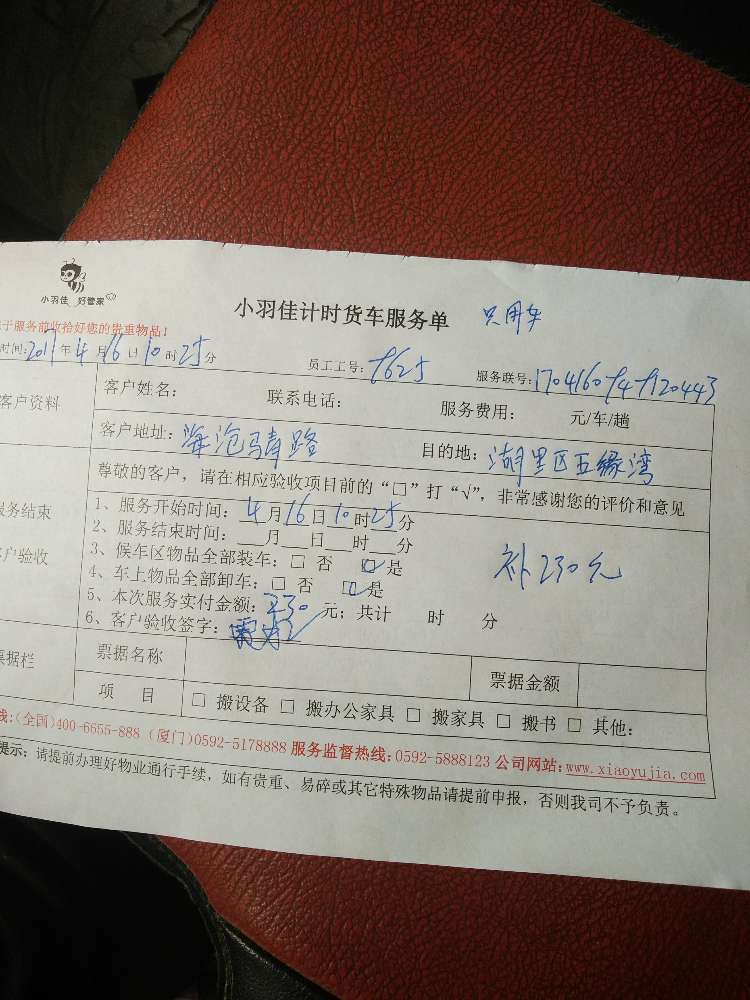 小羽佳 好管家
小羽佳计时货车服务单 只用车
于服务前收拾好您的贵重物品!
时间:2017年4月16日10时25分 员工工号: 服务联号:
客户资料 客户姓名: 联系电话: 服务费用: 元/车/趟
客户地址:海沧马青路 目的地:湖里区五缘湾
尊敬的客户，请在相应验收项目前的“□”打“√”，非常感谢您的评价和意见
服务结束
客户验收
1、服务开始时间:4月16日10时25分
2、服务结束时间:___月___日___时___分
3、候车区物品全部装车:□ 否 □是
4、车上物品全部卸车:□ 否 □是
补230元
5、本次服务实付金额:230元; 共计 时 分
6、客户验收签字:
票据栏 票据名称 票据金额
项 目 □ 搬设备 □ 搬办公家具 □ 搬家具 □ 搬书 □ 其他:
线:(全国)400-6655-888 (厦门)0592-5178888 服务监督热线:0592-5888123 公司网站:www.xiaoyujia.com
提示: 请提前办理好物业通行手续，如有贵重、易碎或其它特殊物品请提前申报，否则我司不予负责。